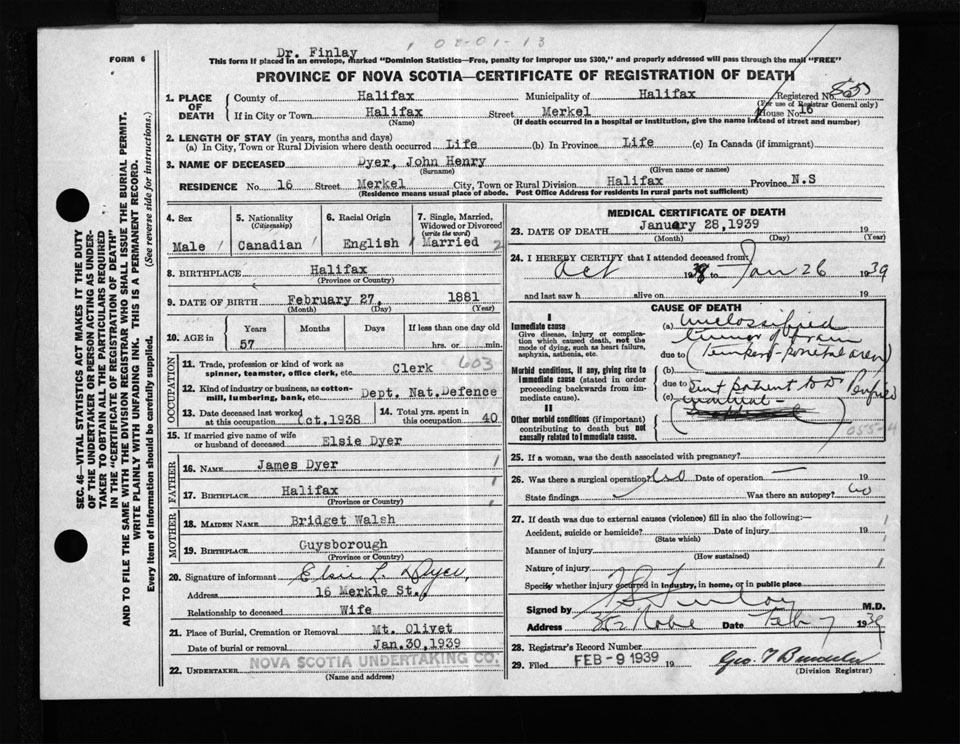 1 02-01-13
Dr. Finlay
FORM 6
This form if placed in an envelope, marked "Dominion Statistics—Free, penalty for improper use $300," and properly addressed will pass through the mail "FREE"
PROVINCE OF NOVA SCOTIA—CERTIFICATE OF REGISTRATION OF DEATH
1. PLACE OF DEATH County of Halifax Municipality of Halifax Registered No.
(For use of Registrar General only)
If in City or Town Halifax Street Merkel House No. 16
(Name) (If death occurred in a hospital or institution, give the name instead of street and number)
2. LENGTH OF STAY (in years, months and days)
(a) In City, Town or Rural Division where death occurred Life (b) In Province Life (c) In Canada (if immigrant)
3. NAME OF DECEASED Dyer, John Henry
(Surname) (Given name or names)
RESIDENCE No. 16 Street Merkel City, Town or Rural Division Halifax Province N.S
(Residence means usual place of abode. Post Office Address for residents in rural parts not sufficient)
4. Sex
Male 1
5. Nationality
(Citizenship)
Canadian 1
6. Racial Origin
English 1
7. Single, Married, Widowed or Divorced
(write the word)
Married 2
8. BIRTHPLACE Halifax
(Province or Country)
9. DATE OF BIRTH February 27, 1881
(Month) (Day) (Year)
10. AGE in Years Months Days If less than one day old
57 hrs. or min.
OCCUPATION
11. Trade, profession or kind of work as spinner, teamster, office clerk, etc. Clerk 603
12. Kind of industry or business, as cotton-mill, lumbering, bank, etc. Dept. Nat. Defence
13. Date deceased last worked at this occupation Oct. 1938
14. Total yrs. spent in this occupation 40
15. If married give name of wife or husband of deceased Elsie Dyer
FATHER
16. NAME James Dyer 1
17. BIRTHPLACE Halifax 1
(Province or Country)
MOTHER
18. MAIDEN NAME Bridget Walsh
19. BIRTHPLACE Guysborough
(Province or Country)
20. Signature of informant Elsie L. Dyer,
Address 16 Merkle St.
Relationship to deceased Wife
21. Place of Burial, Cremation or Removal Mt. Olivet
Date of burial or removal Jan. 30, 1939
22. UNDERTAKER NOVA SCOTIA UNDERTAKING CO.
(Name and address)
MEDICAL CERTIFICATE OF DEATH
23. DATE OF DEATH January 28, 1939 19
(Month) (Day) (Year)
24. I HEREBY CERTIFY that I attended deceased from
Oct 1938 to Jan 26 1939
and last saw h alive on 19
CAUSE OF DEATH
I
Immediate cause
Give disease, injury or complication which caused death, not the mode of dying, such as heart failure, asphyxia, asthenia, etc.
Morbid conditions, if any, giving rise to immediate cause (stated in order proceeding backwards from immediate cause).
II
Other morbid conditions (if important) contributing to death but not causally related to immediate cause.
(a) Unclassified
tumor of brain
due to (temporo-parietal area)
(b)
due to Sent patient to Dr Penfield
(c) Montreal
055-4
25. If a woman, was the death associated with pregnancy?
26. Was there a surgical operation? No Date of operation — 19
State findings Was there an autopsy? No
27. If death was due to external causes (violence) fill in also the following:—
Accident, suicide or homicide? Date of injury 19
(State which)
Manner of injury
(How sustained)
Nature of injury
Specify whether injury occurred in industry, in home, or in public place
Signed by Finlay M.D.
Address Date Feb 7 1939
28. Registrar's Record Number
29. Filed FEB -9 1939 19 Geo. T
(Division Registrar)
SEC. 46—VITAL STATISTICS ACT MAKES IT THE DUTY
OF THE UNDERTAKER OR PERSON ACTING AS UNDER-
TAKER TO OBTAIN ALL THE PARTICULARS REQUIRED
IN THE "CERTIFICATE OF REGISTRATION OF DEATH"
AND TO FILE THE SAME WITH THE DIVISION REGISTRAR WHO SHALL ISSUE THE BURIAL PERMIT.
WRITE PLAINLY WITH UNFADING INK. THIS IS A PERMANENT RECORD.
Every item of information should be carefully supplied. (See reverse side for instructions.)